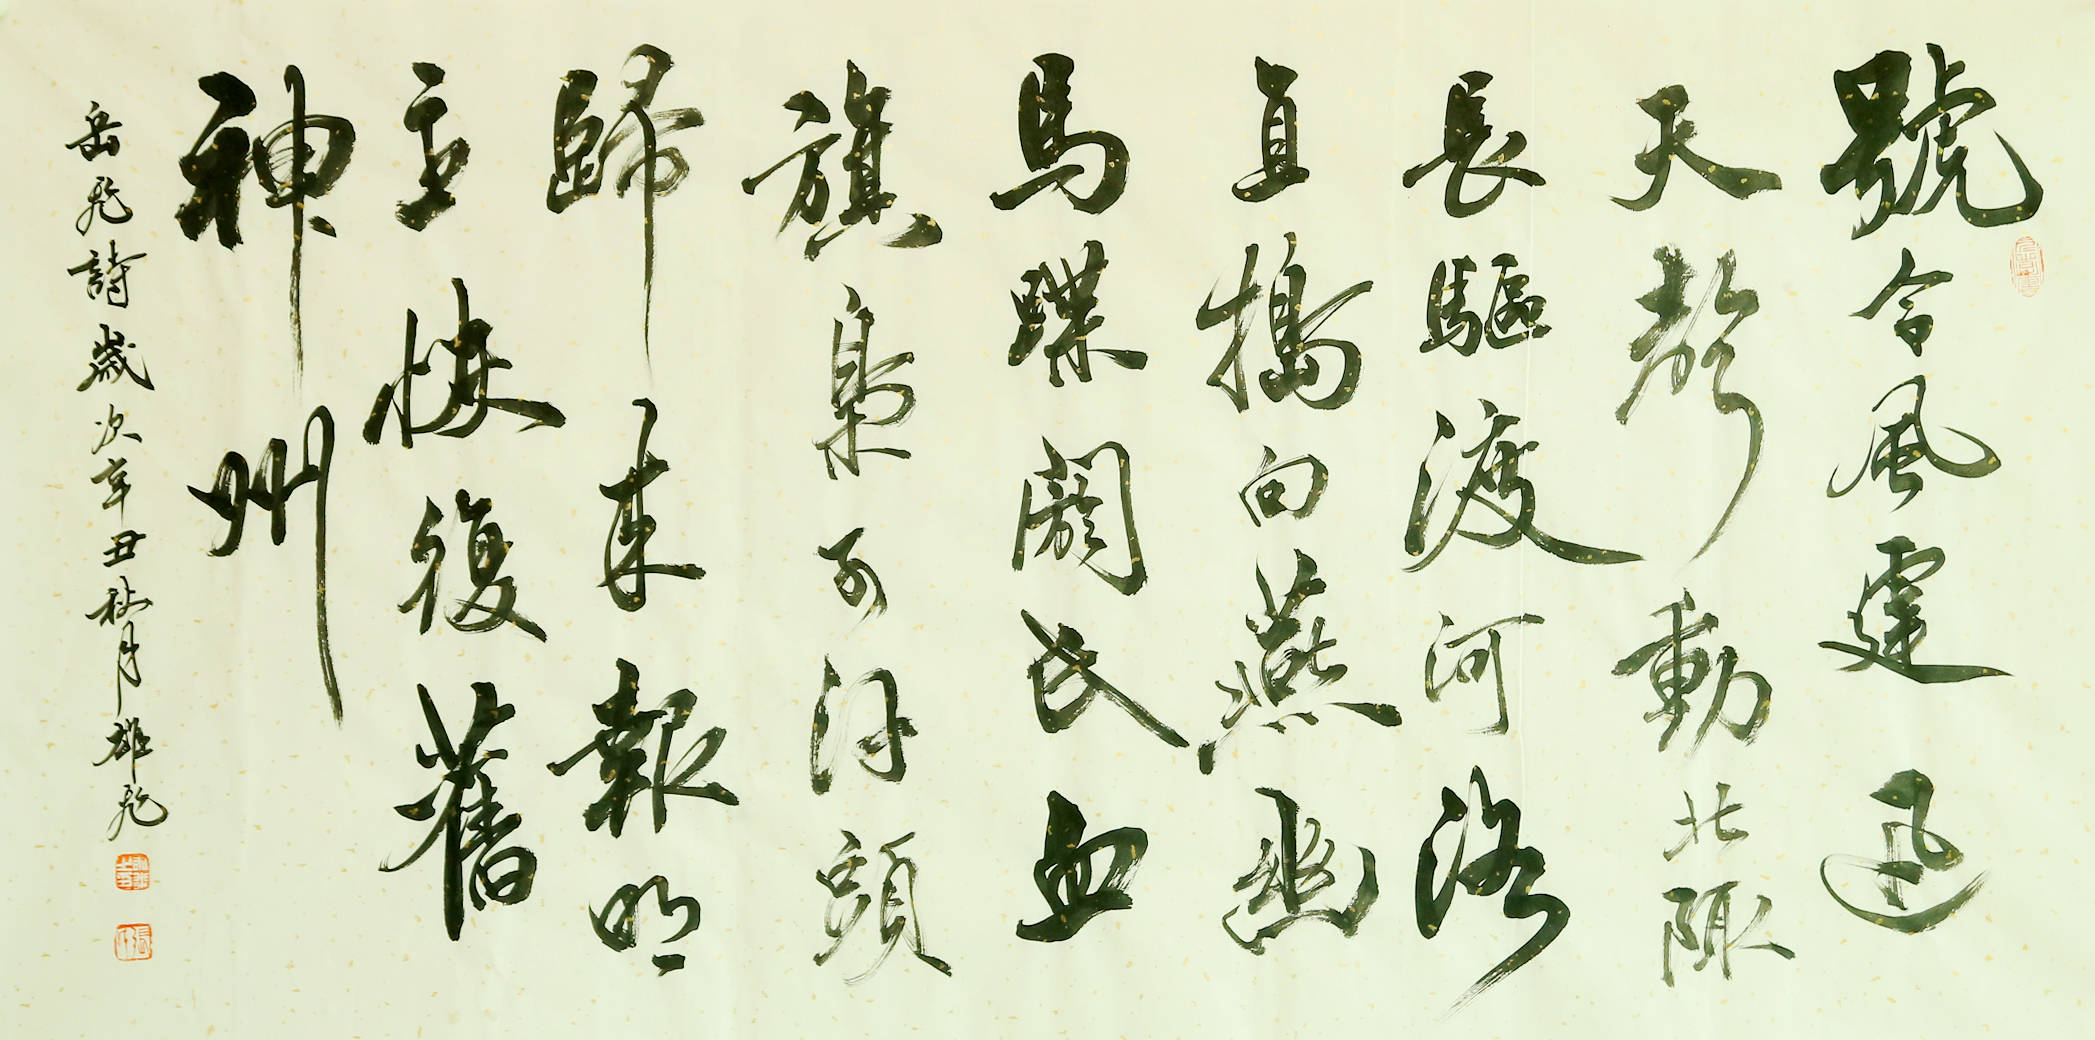 號令風霆迅
天聲動北陬
長驅渡河洛
直搗向燕幽
馬蹀閼氏血
旗梟可汗頭
歸來報明
主恢復舊
神州
岳飛詩歲次辛丑秋月雄飛